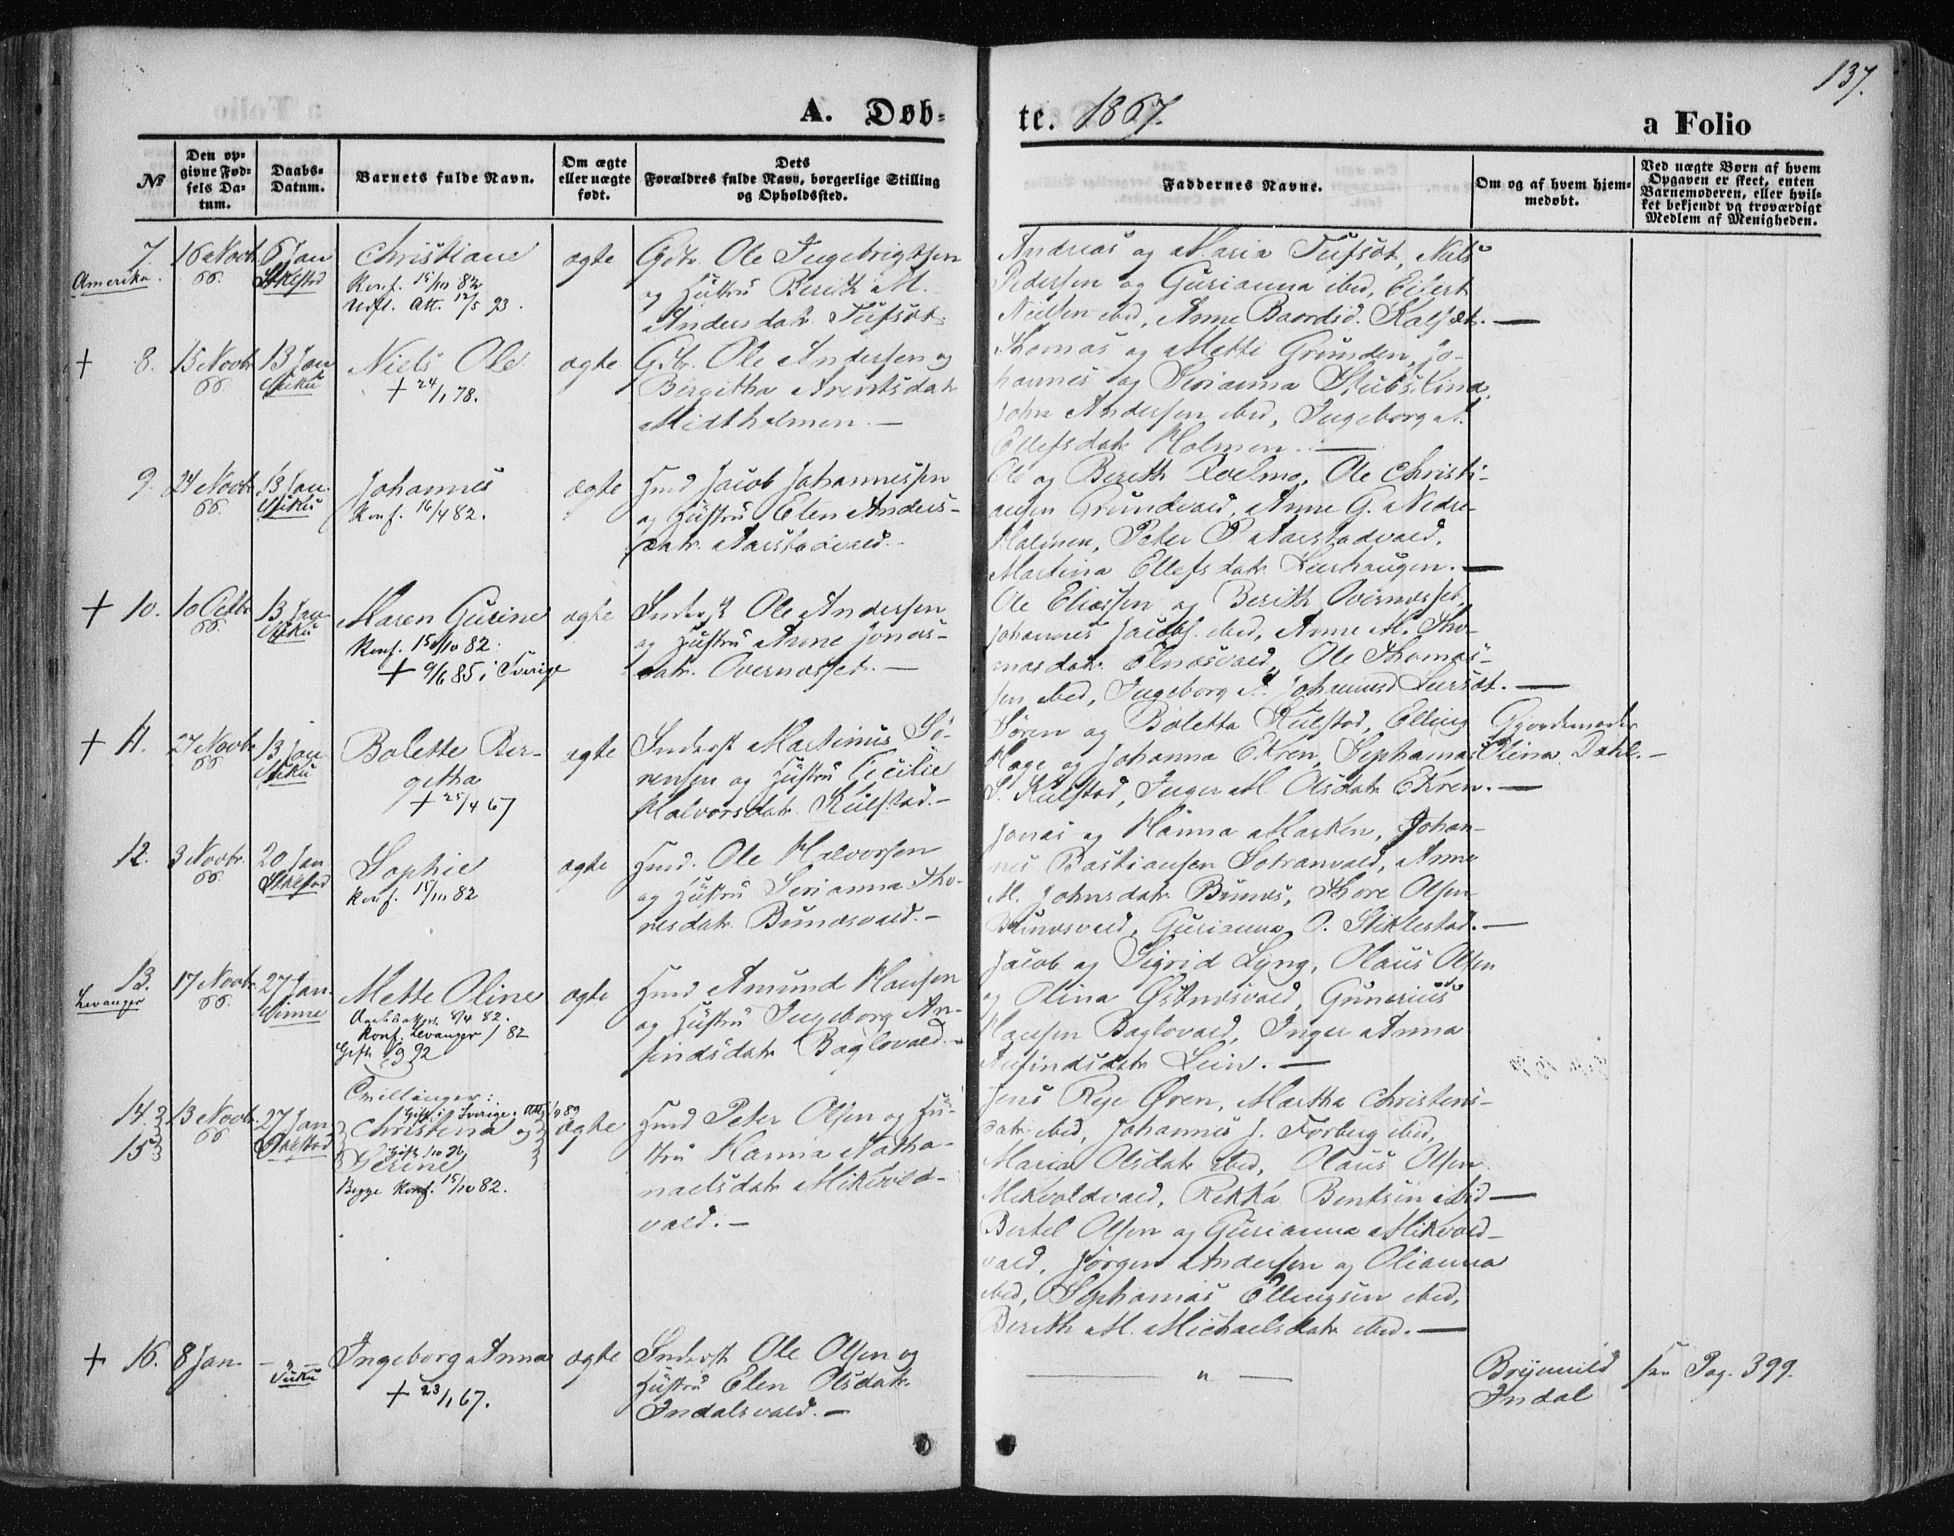 137.
A. Døb-
te. 1867.
a Folio
№
Den op-
givne Fød-
sels Da-
tum.
Daabs-
Datum.
Barnets fulde Navn.
Om ægte
eller uægte
født.
Dets
Forældres fulde Navn, borgerlige Stilling
og Opholdssted.
Faddernes Navne.
Om og af hvem hjem-
medøbt.
Ved uægte Børn af hvem
Opgaven er skeet, enten
Barnemoderen, eller hvil-
ket bekjendt og troværdigt
Medlem af Menigheden.
7.
Amerika.
16 Novbr
66.
6 Jan
Christiane
Konf. 15/10 82
Udfl. Att. 12/5 93.
ægte
Gbr. Ole Ingebrigtsen
og Hustru Berith M.
Andersdatr Tufsöt
Andreas og Maria Tufsöt, Niels
Pedersen og Gurianna ibid, Eilert
Nielsen ibid, Anne Baardsd.
+ 8.
15 Novbr
66
13 Jan
Niels Ole
+ 24/1 78.
ægte
Gbr. Ole Andersen og
Bergitha Arentsdatr
Midtholmen. —
Thomas og Metti Grunden, Jo-
hannes og Serianna
John Andersen ibid, Ingeborg A.
Ellefsdatr Holmen. —
9.
24 Novbr
66
13 Jan.
Johannes
Konf. 16/4 82.
ægte
Husmd Jacob Johannessen
og Hustru Elen Anders-
datr. Aarstadvald. -
Ole og Berith Ole Christi-
ansen Grundvald, Anne G. Nedre
Holmen, Peter P Aarstadvald,
Martina Ellefsdatr Leirhaugen. —
+ 10.
10 Octbr
66
13 Jan
Maren Gurine
Konf. 15/10 82.
+ 9/6 85 i Sverige
ægte
Inderst Ole Andersen
og Hustru Anne Jonas-
datr. Overnæsset. —
Ole Eliassen og Berith Overnæsset,
Johannes Jacobs. ibid, Anne M. Tho-
masdatr Elnæsvald, Ole Thomas-
sen ibid, Ingeborg A. —
+ 11.
27 Novbr
66
13 Jan
Bolette Ber-
getha
+ 25/4 67
ægte
Inderst Martinus Sö-
rensen og Hustru Cecilie
Halvorsdatr Kulstad. —
Sören og Boletta Kulstad, Elling
Hage og Johanna Ekren, Sephanias
S. Kulstad, Inger M. Olsdatr Ekren. —
Gjordemoder
Olina Dahl. —
12.
3 Novbr.
66
20 Jan
Sophie
Konf. 15/10 82
ægte
Husmd. Ole Halvorsen
og Hustru Serianna Tho-
resdatr Bunæsvald. —
Jonas og Hanna Marken, Johan-
nes Bastiansen Sotranvald, Anne
M. Johnsdatr Bunæs, Thore Olsen
Bunæsvald, Gurianna O. Stiklestad. —
13.
Levanger
17 Novbr
66
27 Jan.
Vinne
Mette Oline
Daabsattest 8/4 82.
Konf. Levanger / 82
Gift 92
ægte
Husmd Amund Hansen
og Hustru Ingeborg An-
findsdatr Baglovald. —
Jacob og Sigrid Lyng, Olaus Olsen
og Olina Østnæsvald, Gunerius
Hansen Baglovald, Inger Anna
Anfindsdatr Lein. —
14.
15
13 Novbr.
66
27 Jan
Tvillinger:
Christina og
Serine
Begge Konf. 15/10 82.
ægte
Husmd Peter Olsen og Hu-
stru Hanna Natha-
naelsdatr Mikvold-
vald. —
Jens Reje Øren, Martha Christens-
datr ibid, Johannes J. Forberg ibid,
Maria Olsdatr ibid, Olaus Olsen
Mikvoldvald, Rekka Bentsen ibid —
Bertel Olsen og Gurianna Mikvold-
vald, Jörgen Andersen og Olianna
ibid, Sephanias Ellingsen ibid,
Berith M. Michaelsdatr ibid. —
+ 16.
8 Jan
— „ —
Ingeborg Anna
+ 23/1 67.
ægte
Inderst Ole Olsen og
Hustru Elen Olsdatr
Indalsvald. —
— „ —
Indal
Pag. 399.